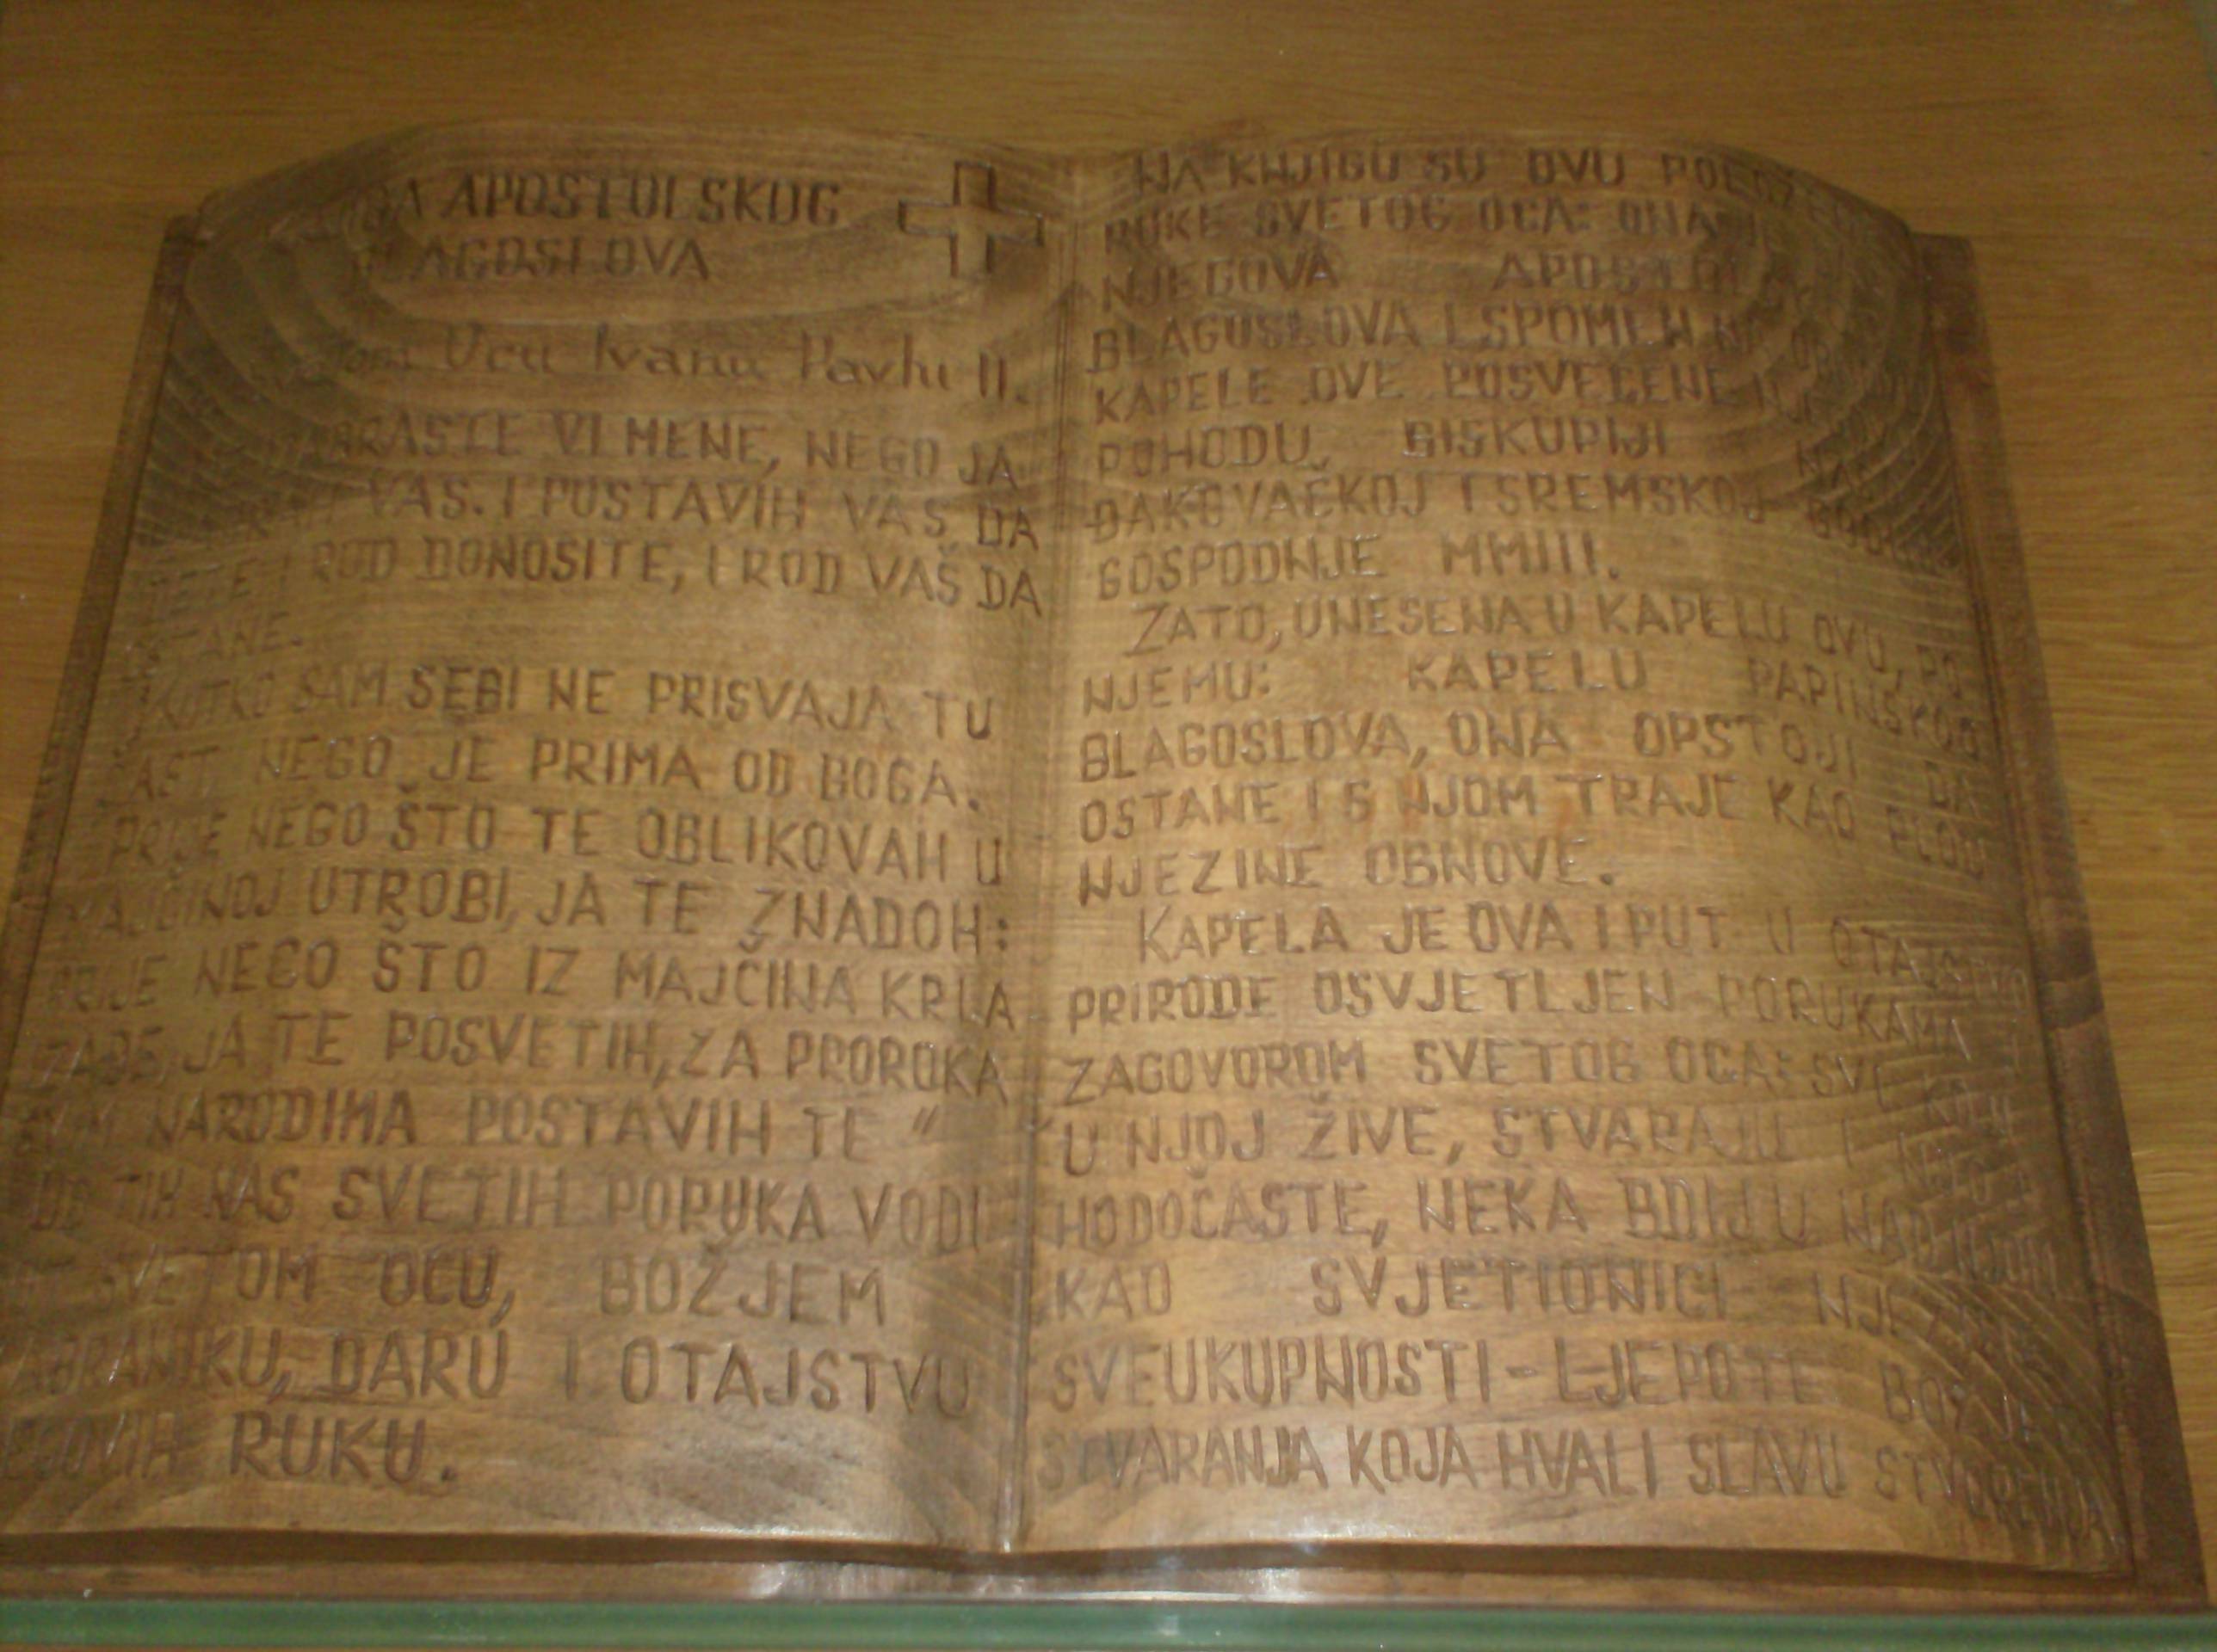 APOSTOLSKOG
BLAGOSLOVA
Ocu Ivanu Pavlu II.
VI MENE, NEGO JA
VAS. I POSTAVIH VAS DA
I ROD DONOSITE, I ROD VAŠ DA
OSTANE.
SAM SEBI NE PRISVAJA TU
ČAST NEGO JE PRIMA OD BOGA.
PRIJE NEGO ŠTO TE OBLIKOVAH U
MAJČINOJ UTROBI, JA TE ZNADOH:
PRIJE NEGO ŠTO IZ MAJČINA KRILA
IZAĐE, JA TE POSVETIH, ZA PROROKA
SVIM NARODIMA POSTAVIH TE "
OD TIH NAS SVETIH PORUKA VODI
SVETOM OCU, BOŽJEM
IZABRANIKU, DARU I OTAJSTVU
NJEGOVIH RUKU.
NA KNJIGU SU OVU
RUKE SVETOG OCA: ONA
NJEGOVA
BLAGOSLOVA I SPOMEN NA
KAPELE OVE POSVEĆENE
POHODU, BISKUPIJI
ĐAKOVAČKOJ I SREMSKOJ
GOSPODNJE MMIII.
ZATO, UNESENA U KAPELU OVU, PO
NJEMU: KAPELU PAPINSKOG
BLAGOSLOVA, ONA OPSTOJI DA
OSTANE I S NJOM TRAJE KAO PLOD
NJEZINE OBNOVE.
KAPELA JE OVA I PUT U OTAJSTVO
PRIRODE OSVJETLJEN PORUKAMA I
ZAGOVOROM SVETOG OCA: SVI KOJI
U NJOJ ŽIVE, STVARAJU I
HODOČASTE, NEKA BDIJU NAD NJOM
KAO SVJETIONICI NJEZINE
SVEUKUPNOSTI - LJEPOTE BOŽJEG
STVARANJA KOJA HVALI SLAVU STVORENJA